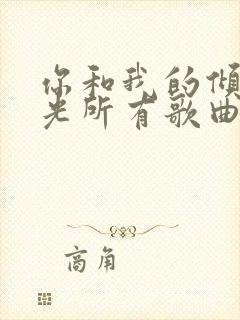 你和我的倾
光所有歌曲
商角